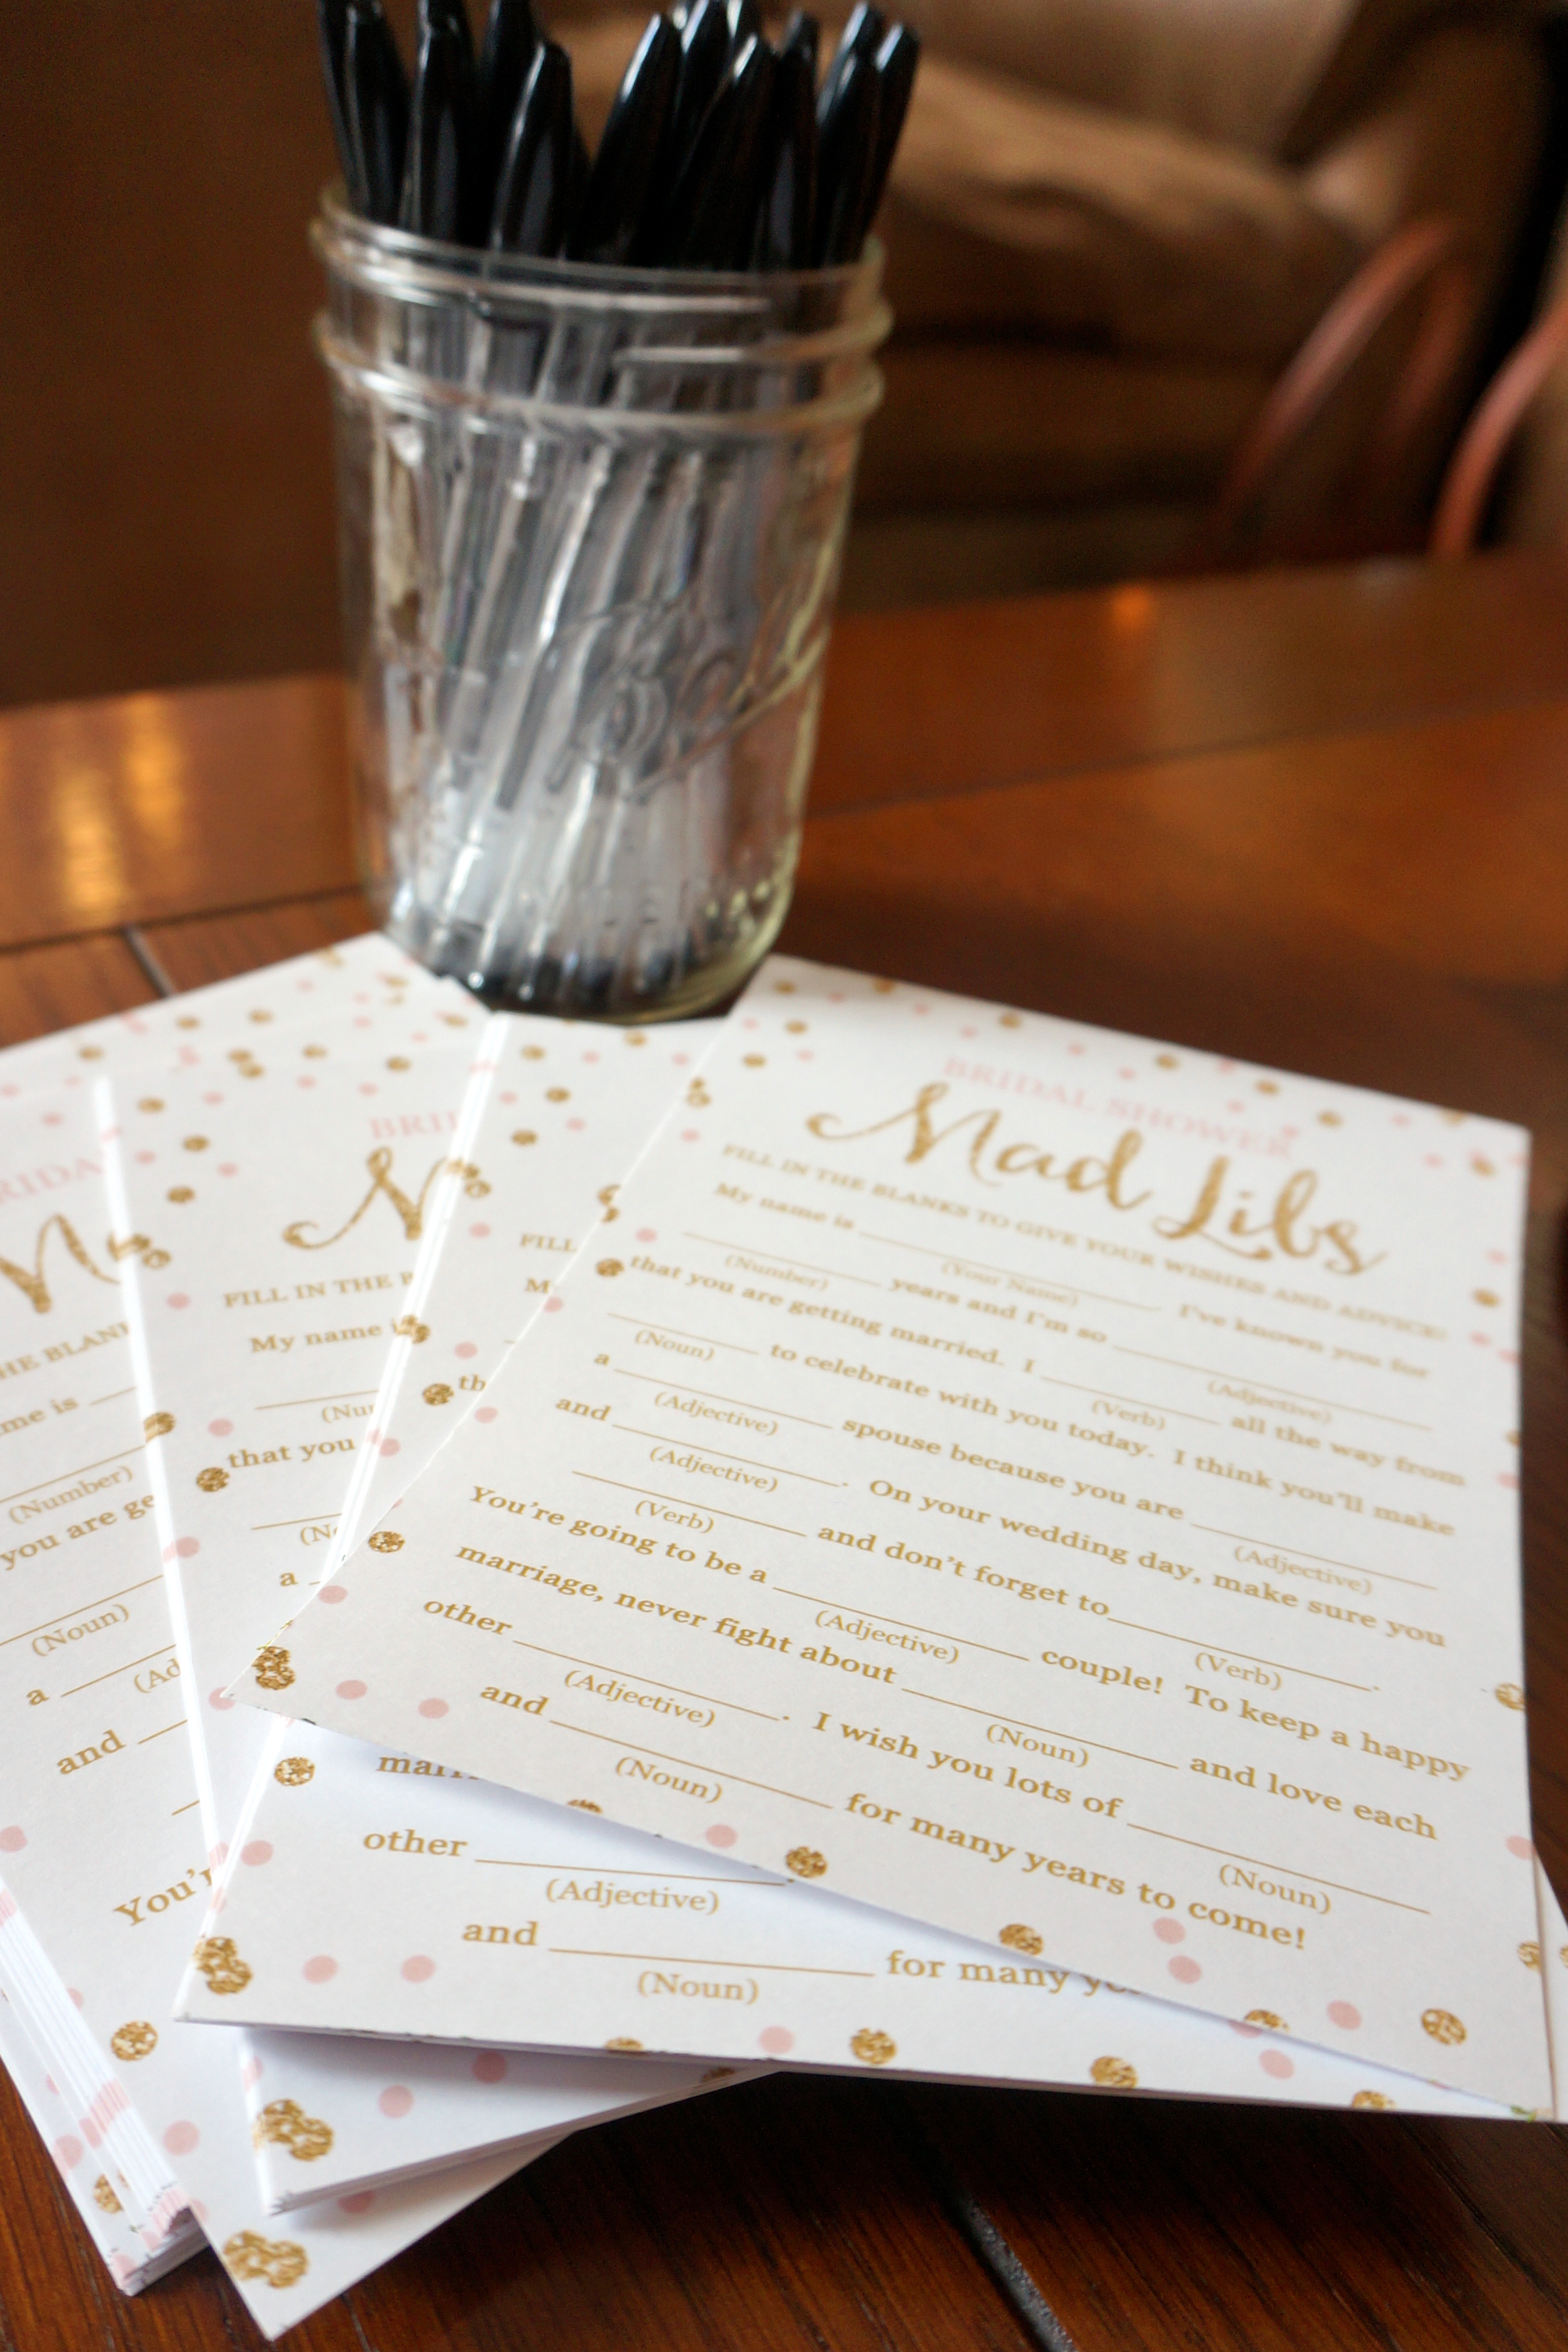 Ball
BRIDAL SHOWER
Mad Libs
FILL IN THE BLANKS TO GIVE YOUR WISHES AND ADVICE!
My name is ____________ I've known you for
(Your Name)
____________ years and I'm so ____________
(Number) (Adjective)
that you are getting married. I ____________ all the way from
(Verb)
____________ to celebrate with you today. I think you'll make
(Noun)
a ____________ spouse because you are ____________
(Adjective) (Adjective)
and ____________. On your wedding day, make sure you
(Adjective)
____________ and don't forget to____________.
(Verb) (Verb)
You're going to be a ____________ couple! To keep a happy
(Adjective)
marriage, never fight about ____________ and love each
(Noun)
other ____________. I wish you lots of ____________
(Adjective) (Noun)
and ____________ for many years to come!
(Noun)
other ____________.
(Adjective)
and ____________ for many
(Noun)
BRID
FILL IN THE B
My name i
(Nur
that you
(No
a
FILL
M
th
RIDA
HE BLANK
me is
(Number)
you are ge
(Noun)
a
(Ad
and
You'r